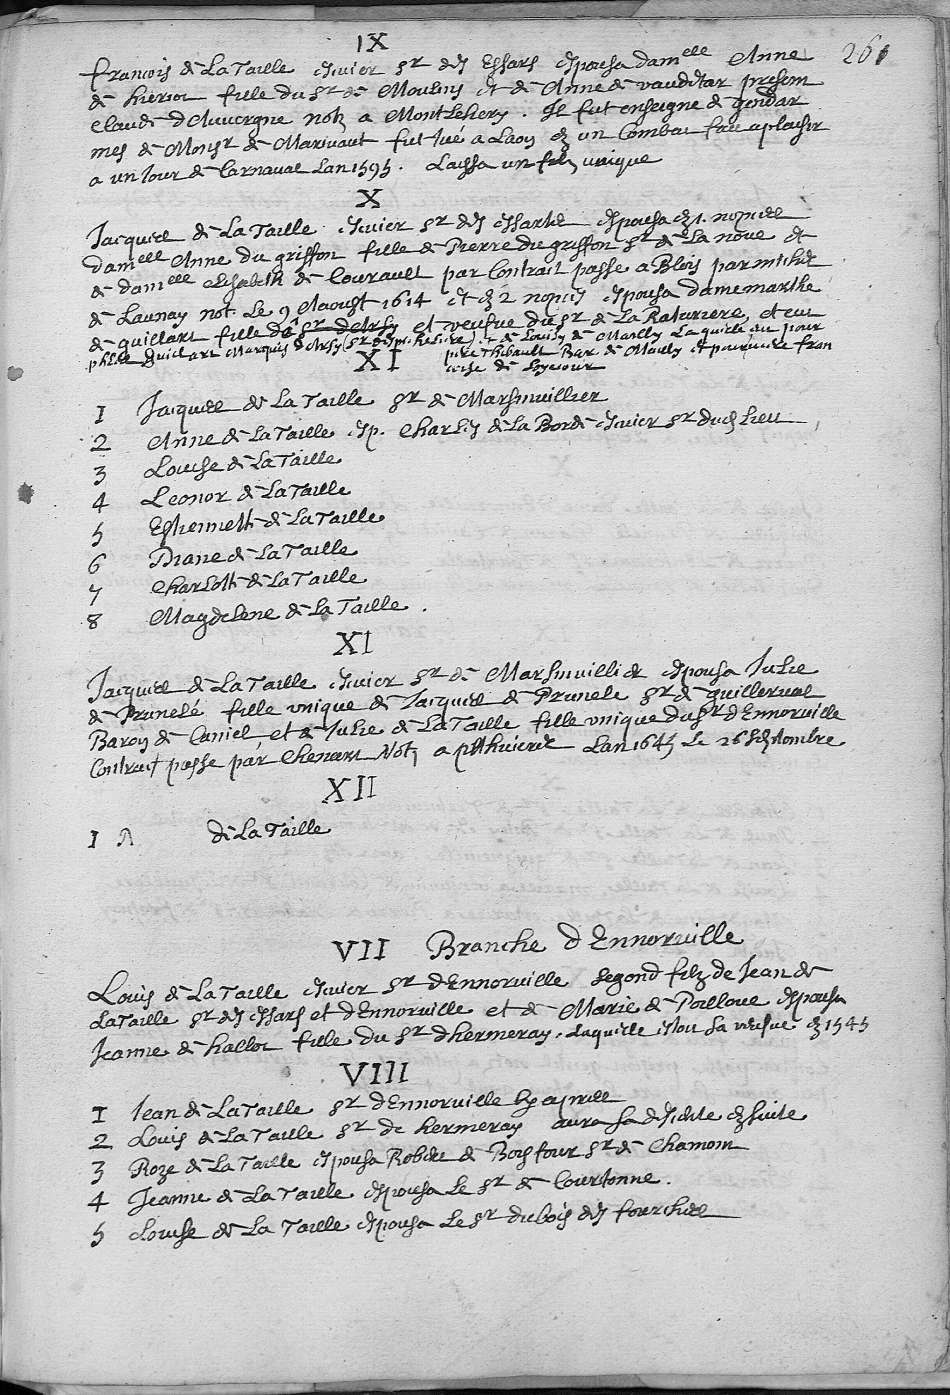 261
IX
francois de La Taille escuier sr des Essars espousa damelle Anne
de hierior fille du sr de Moulins et de Anne de vaudetar presem
Claude d'Auvergne notre a MontLehery. Il fut enseigne de gendar
mes de Monsr de Marivaut fut tué a Laon en un Combat fait a plaisir
a un Iour de Carnaval Lan 1595. Laissa un filz unique
X
Jacques de La Taille escuier sr des essarts espousa en 1. nopces
damelle Anne du griffon fille de Pierre du griffon sr de La noue et
de damelle Elisabeth de Courault par Contrait passe a Blois par michel
de Launay not. Le 9 d'Aoust 1614 et en 2 nopces espousa dame marthe
de quillart fille de sr d'Arsy et veufue du sr de La Raturiere, et eut
guillart Marquis d'Arsy (sr de) et de Louise de Mailly La quelle eut pour
pere Thibault Bar de Mailly et pour mere fran
coise de Soyecour
XI
1 Jacques de La Taille sr de Marsinvillier
2 Anne de La Taille esp. Charles de La Borde escuier sr dudt Lieu
3 Louise de La Taille
4 Leonor de La Taille
5 Esthennette de La Taille
6 Diane de La Taille
7 Charlotte de La Taille
8 Magdelene de La Taille.
XI
Jacques de La Taille escuier sr de Marsinvillier espousa Julie
de Prunelé fille unique de Jacques de Prunele sr de guillerval
Baron de Caniel et de Julie de La Taille fille unique du sr d'Ennorville
Contrait passe par Chenart Notre a pithuiers Lan 1645 Le 26 septembre
XII
1 A de La Taille
VII Branche d'Ennorville
Louis de La Taille escuier sr d'Ennorville segond filz de Jean de
La Taille sr des essars et d'Ennorville et de Marie de Poilloue espousa
Jeanne de hallot fille du sr d'hermeray, Laquelle estoit sa veufue en 1545
VIII
1 Jean de La Taille sr d'Ennorville cy apres
2 Louis de La Taille sr de hermeray aura sa desdite en suite
3 Roze de La Taille espousa Robert de Boisfour sr de Chamont
4 Jeanne de La Taille espousa Le sr de Courtonne.
5 Louise de La Taille espousa Le sr du bois des fourches